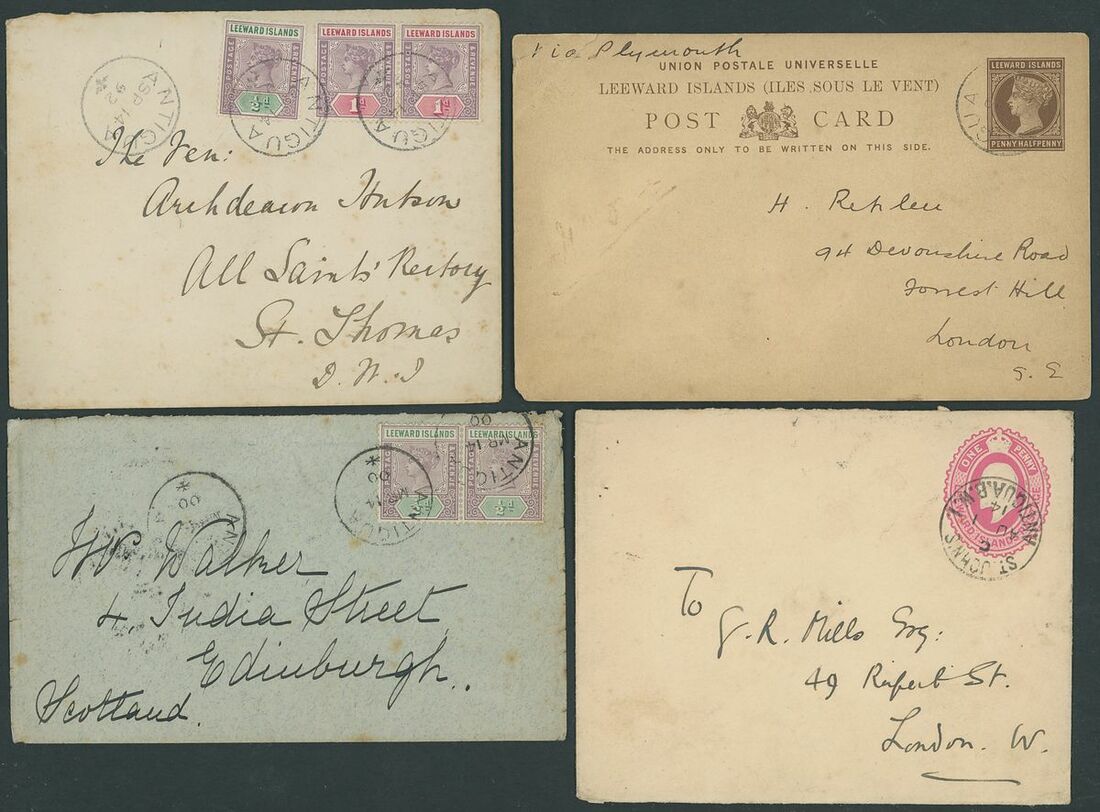 LEEWARD ISLANDS
POSTAGE
REVENUE
½d
LEEWARD ISLANDS
POSTAGE
1d
LEEWARD ISLANDS
POSTAGE
& REVENUE
1d
ANTIGUA
A
SP 14
92
ANTIGUA
ANTIGUA
The Ven:
Archdeacon Hutson
All Saints' Rectory
St. Thomas
D. W. I
via Plymouth
UNION POSTALE UNIVERSELLE
LEEWARD ISLANDS (ILES SOUS LE VENT)
POST CARD
THE ADDRESS ONLY TO BE WRITTEN ON THIS SIDE.
LEEWARD ISLANDS
PENNY HALFPENNY
GUA
H.
94 Devonshire Road
Forrest Hill
London
S. E
LEEWARD ISLANDS
POSTAGE
LEEWARD ISLANDS
POSTAGE
REVENUE
½d
ANTIGUA
MR 14
00
ANTIGUA
MR 14
00
AN
00
A
W Walker
4 India Street
Edinburgh.
Scotland.
ONE PENNY
LEEWARD ISLANDS
ST. JOHN'S
ANTIGUA. B.W.I.
C
AU 1
14
To
G. R. Mills Esq:
49 Rupert St.
London. W.